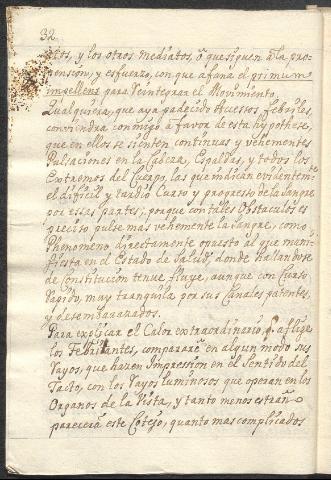 32
ctos, y los otros mediatos, ò que siguen à la pro-
pension, y esfuerzo, con que afana el primum
impellens para Reintegrar el Movimiento.
Qualquiera, que aya padecido Accesos febriles,
convendra conmigo à favor de esta hypothese,
que en ellos se sienten continuas y vehementes
Pulsaciones en la Cabeza, Espaldas, y todos los
Extremos del Cuerpo, las que indican evidentemte
el dificil y tardio Curso y progresso de la Sangre
por esses partes, porque con tales Obstaculos es
preciso pulse mas vehemente la Sangre, como
Phenomeno directamente opuesto al que mani-
fiesta en el Estado de Salud, donde hallandose
de Constitucion tenue fluye, aunque con Curso
Rapido, muy tranquila por sus Canales patentes,
y desembarazados.
Para explicar el Calor extraordinario, q. aflige
los Febrilitantes, compararè en algun modo sus
Rayos, que hazen Impression en el Sentido del
Tacto, con los Rayos luminosos que operan en los
Organos de la Vista, y tanto menos estraño
parecerà este Cotejo, quanto mas complicados